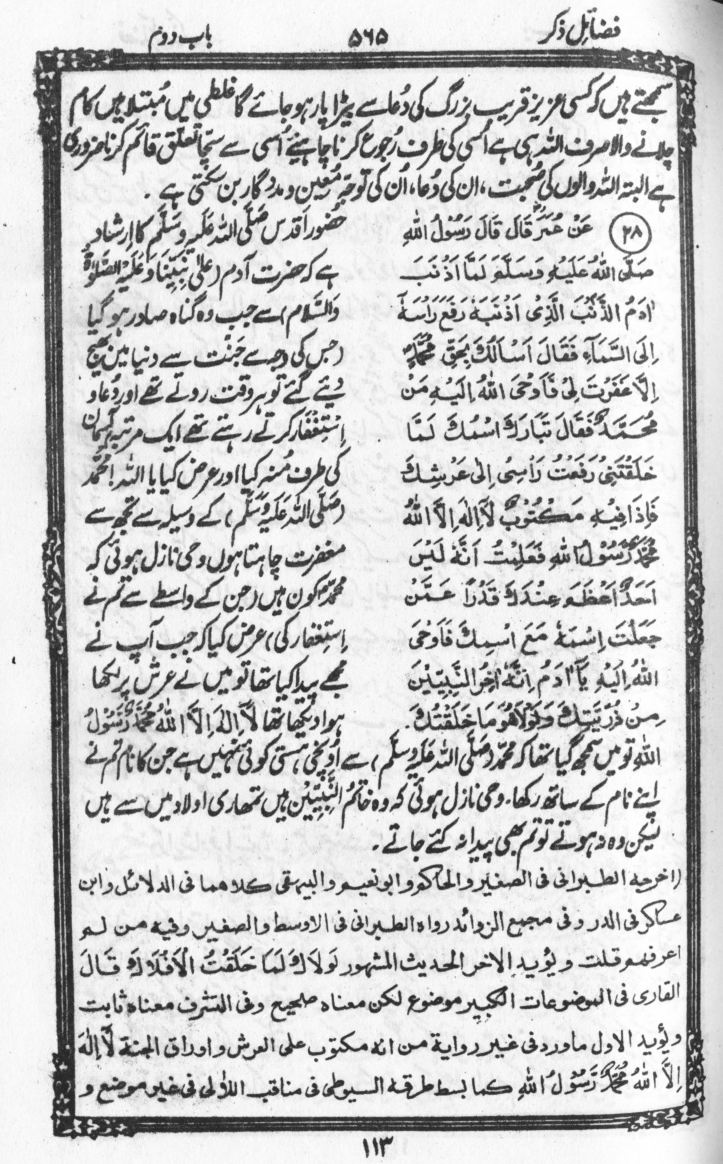 فضائل ذکر
۵۶۵
باب دوم
سمجھتے ہیں کہ کسی عزیز قریب بزرگ کی دُعا سے بیڑا پار ہو جائے گا غلطی میں مُبتلا ہیں کام
چلانے والا صرف اللہ ہی ہے اُسی کی طرف رُجوع کرنا چاہئے اُسی سے سچا تعلق قائم کرنا ضروری
ہے البتہ اللہ والوں کی صُحبت، ان کی دُعا، اُن کی توجہ مُعین و مددگار بن سکتی ہے۔
۲۸ عَنْ عُمَرَ قَالَ قَالَ رَسُوْلُ اللهِ
صَلَّى اللهُ عَلَيْهِ وَسَلَّمَ لَمَّا اَذْنَبَ
اٰدَمُ الذَّنْبَ الَّذِىْ اَذْنَبَهٗ رَفَعَ رَاْسَهٗ
اِلَى السَّمَآءِ فَقَالَ اَسْاَلُكَ بِحَقِّ مُحَمَّدٍ
اِلَّا غَفَرْتَ لِىْ فَاَوْحَى اللهُ اِلَيْهِ مَنْ
مُحَمَّدٌ فَقَالَ تَبَارَكَ اسْمُكَ لَمَّا
خَلَقْتَنِىْ رَفَعْتُ رَاْسِىْ اِلٰى عَرْشِكَ
فَاِذَا فِيْهِ مَكْتُوْبٌ لَآ اِلٰهَ اِلَّا اللهُ
مُحَمَّدٌ رَّسُوْلُ اللهِ فَعَلِمْتُ اَنَّهٗ لَيْسَ
اَحَدٌ اَعْظَمَ عِنْدَكَ قَدْرًا عَمَّنْ
جَعَلْتَ اِسْمَهٗ مَعَ اسْمِكَ فَاَوْحَى
اللهُ اِلَيْهِ يَآ اٰدَمُ اِنَّهٗ اٰخِرُ النَّبِيِّيْنَ
مِنْ ذُرِّيَّتِكَ وَلَوْلَا هُوَ مَا خَلَقْتُكَ.
حضور اقدس صَلَّی اللہ عَلَیْہِ وَسَلَّم کا ارشاد
ہے کہ حضرت آدم (عَلٰی نَبِیِّنَا وَعَلَیْہِ الصَّلٰوۃُ
وَالسَّلَام) سے جب وہ گناہ صادر ہو گیا
(جس کی وجہ سے جنّت سے دنیا میں بھیج
دیئے گئے تو ہر وقت روتے تھے اور دُعا و
اِسْتِغْفَار کرتے رہتے تھے ایک مرتبہ آسمان
کی طرف مُنہ کیا اور عرض کیا یا اللہ! محمّد
(صَلَّی اللہ عَلَیْہِ وَسَلَّم) کے وسیلہ سے تجھ سے
مغفرت چاہتا ہوں وحی نازل ہوئی کہ
محمّد کون ہیں (جن کے واسطے سے تم نے
اِستِغفار کی) عرض کیا کہ جب آپ نے
مجھے پیدا کیا تھا تو میں نے عرش پر لکھا
ہوا دیکھا تھا لَآ اِلٰہَ اِلَّا اللہُ مُحَمَّدٌ رَّسُوْلُ
اللہِ تو میں سمجھ گیا تھا کہ محمّد (صَلَّی اللہ عَلَیْہِ وَسَلَّم) سے اُونچی ہستی کوئی نہیں ہے جن کا نام تم نے
اپنے نام کے ساتھ رکھا، وحی نازل ہوئی کہ وہ خاتمُ النَّبِیِّیْن ہیں تمھاری اولاد میں سے ہیں
لیکن وہ نہ ہوتے تو تم بھی پیدا نہ کئے جاتے۔
(اخرجه الطبرانى فى الصغير والحاكم وابو نعيم والبيهقى كلاهما فى الدلائل وابن
عساكر فى الدر وفى مجمع الزوائد رواه الطبرانى فى الاوسط والصغير وفيه من لم
اعرفهم قلت ويؤيد الاخر الحديث المشهور لَوْلَاكَ لَمَا خَلَقْتُ الْاَفْلَاكَ قَالَ
القارى فى الموضوعات الكبير موضوع لكن معناه صحيح وفى التشرف معناه ثابت
ويؤيد الاول ماورد فى غير رواية من انه مكتوب على العرش واوراق الجنة لَآ اِلٰهَ
اِلَّا اللهُ مُحَمَّدٌ رَّسُوْلُ اللهِ كما بسط طرقه السيوطى فى مناقب اللآلى فى غير موضع و
۱۱۳